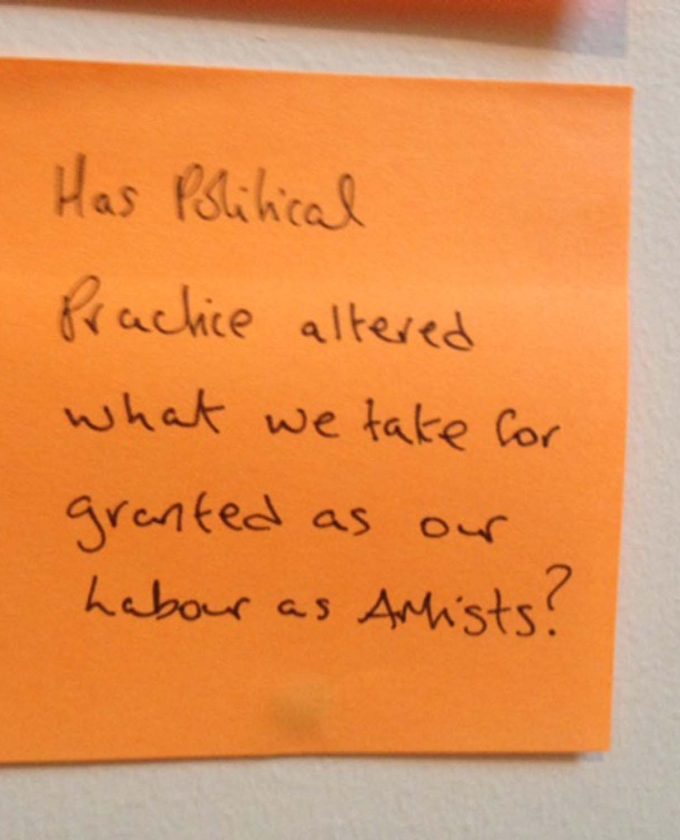 Has Political
Practice altered
what we take for
granted as our
Labour as Artists?